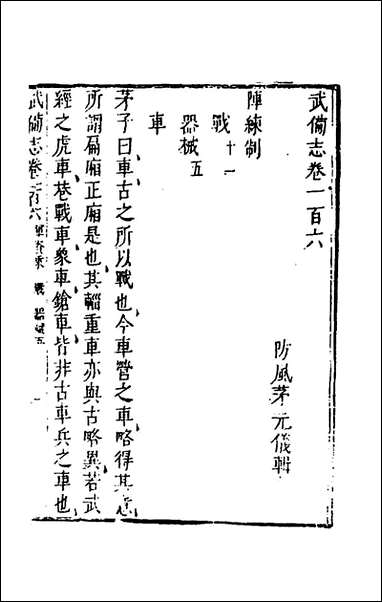 武備志卷一百六
防風茅元儀輯
陣練制
戰十一
器械五
車
茅子曰車古之所以戰也今車營之車略得其意
所謂扁廂正廂是也其輜重車亦與古略異若武
經之虎車巷戰車象車鎗車皆非古車兵之車也
武備志卷一百六 陣練制 戰 器械五 一